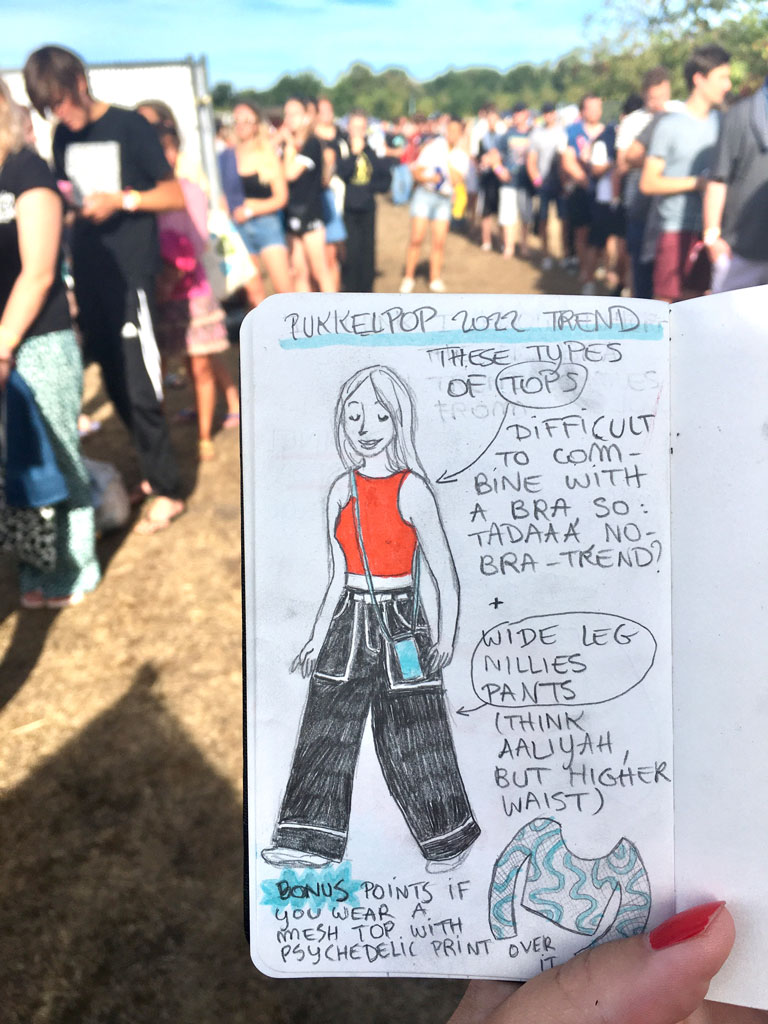 PUKKELPOP 2022 TREND
THESE TYPES
OF TOPS
DIFFICULT
TO COM-
BINE WITH
A BRA SO:
TADAAA NO-
BRA-TREND?
+
WIDE LEG
NILLIES
PANTS
(THINK
AALIYAH,
BUT HIGHER
WAIST)
BONUS POINTS IF
YOU WEAR A
MESH TOP WITH
PSYCHEDELIC PRINT OVER
IT